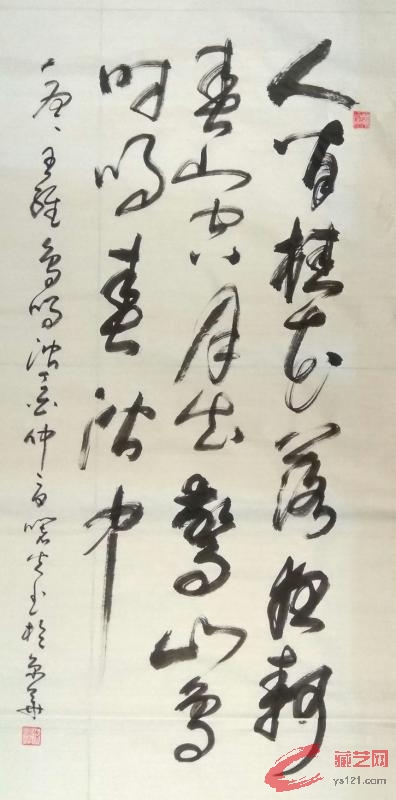 人闲桂花落夜静
春山空月出驚山鸟
时鸣春涧中
唐、王維鸟鸣涧 仲 书於京華
藏艺网
ys121.com